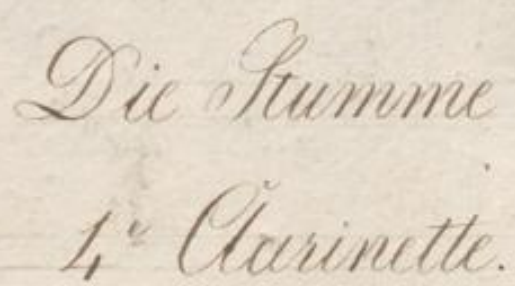 Die Stumme
4e Clarinette.